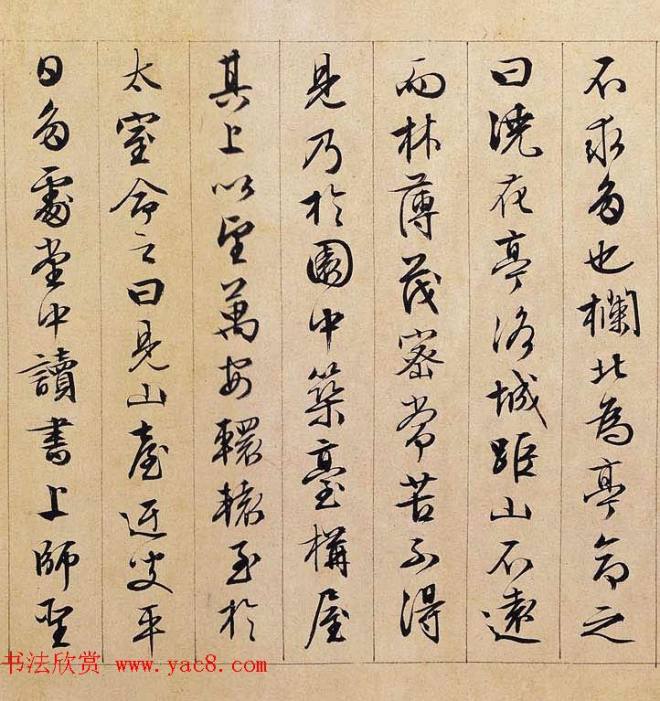 不求多也欄北為亭命之
曰澆花亭洛城距山不遠
而林薄茂密常苦不得
見乃於園中築臺構屋
其上以望萬安轘轅至於
太室命之曰見山臺迂叟平
日多處堂中讀書上師聖
书法欣赏 www.yac8.com